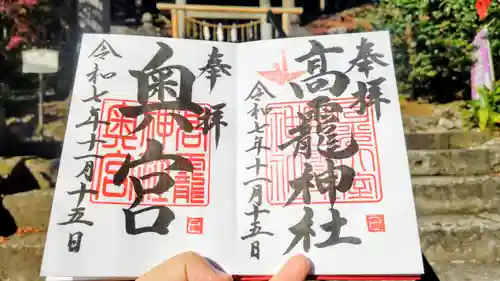 奉拝
高龗神社
令和七年十一月十五日
奉拝
奥宮
令和七年十一月十五日